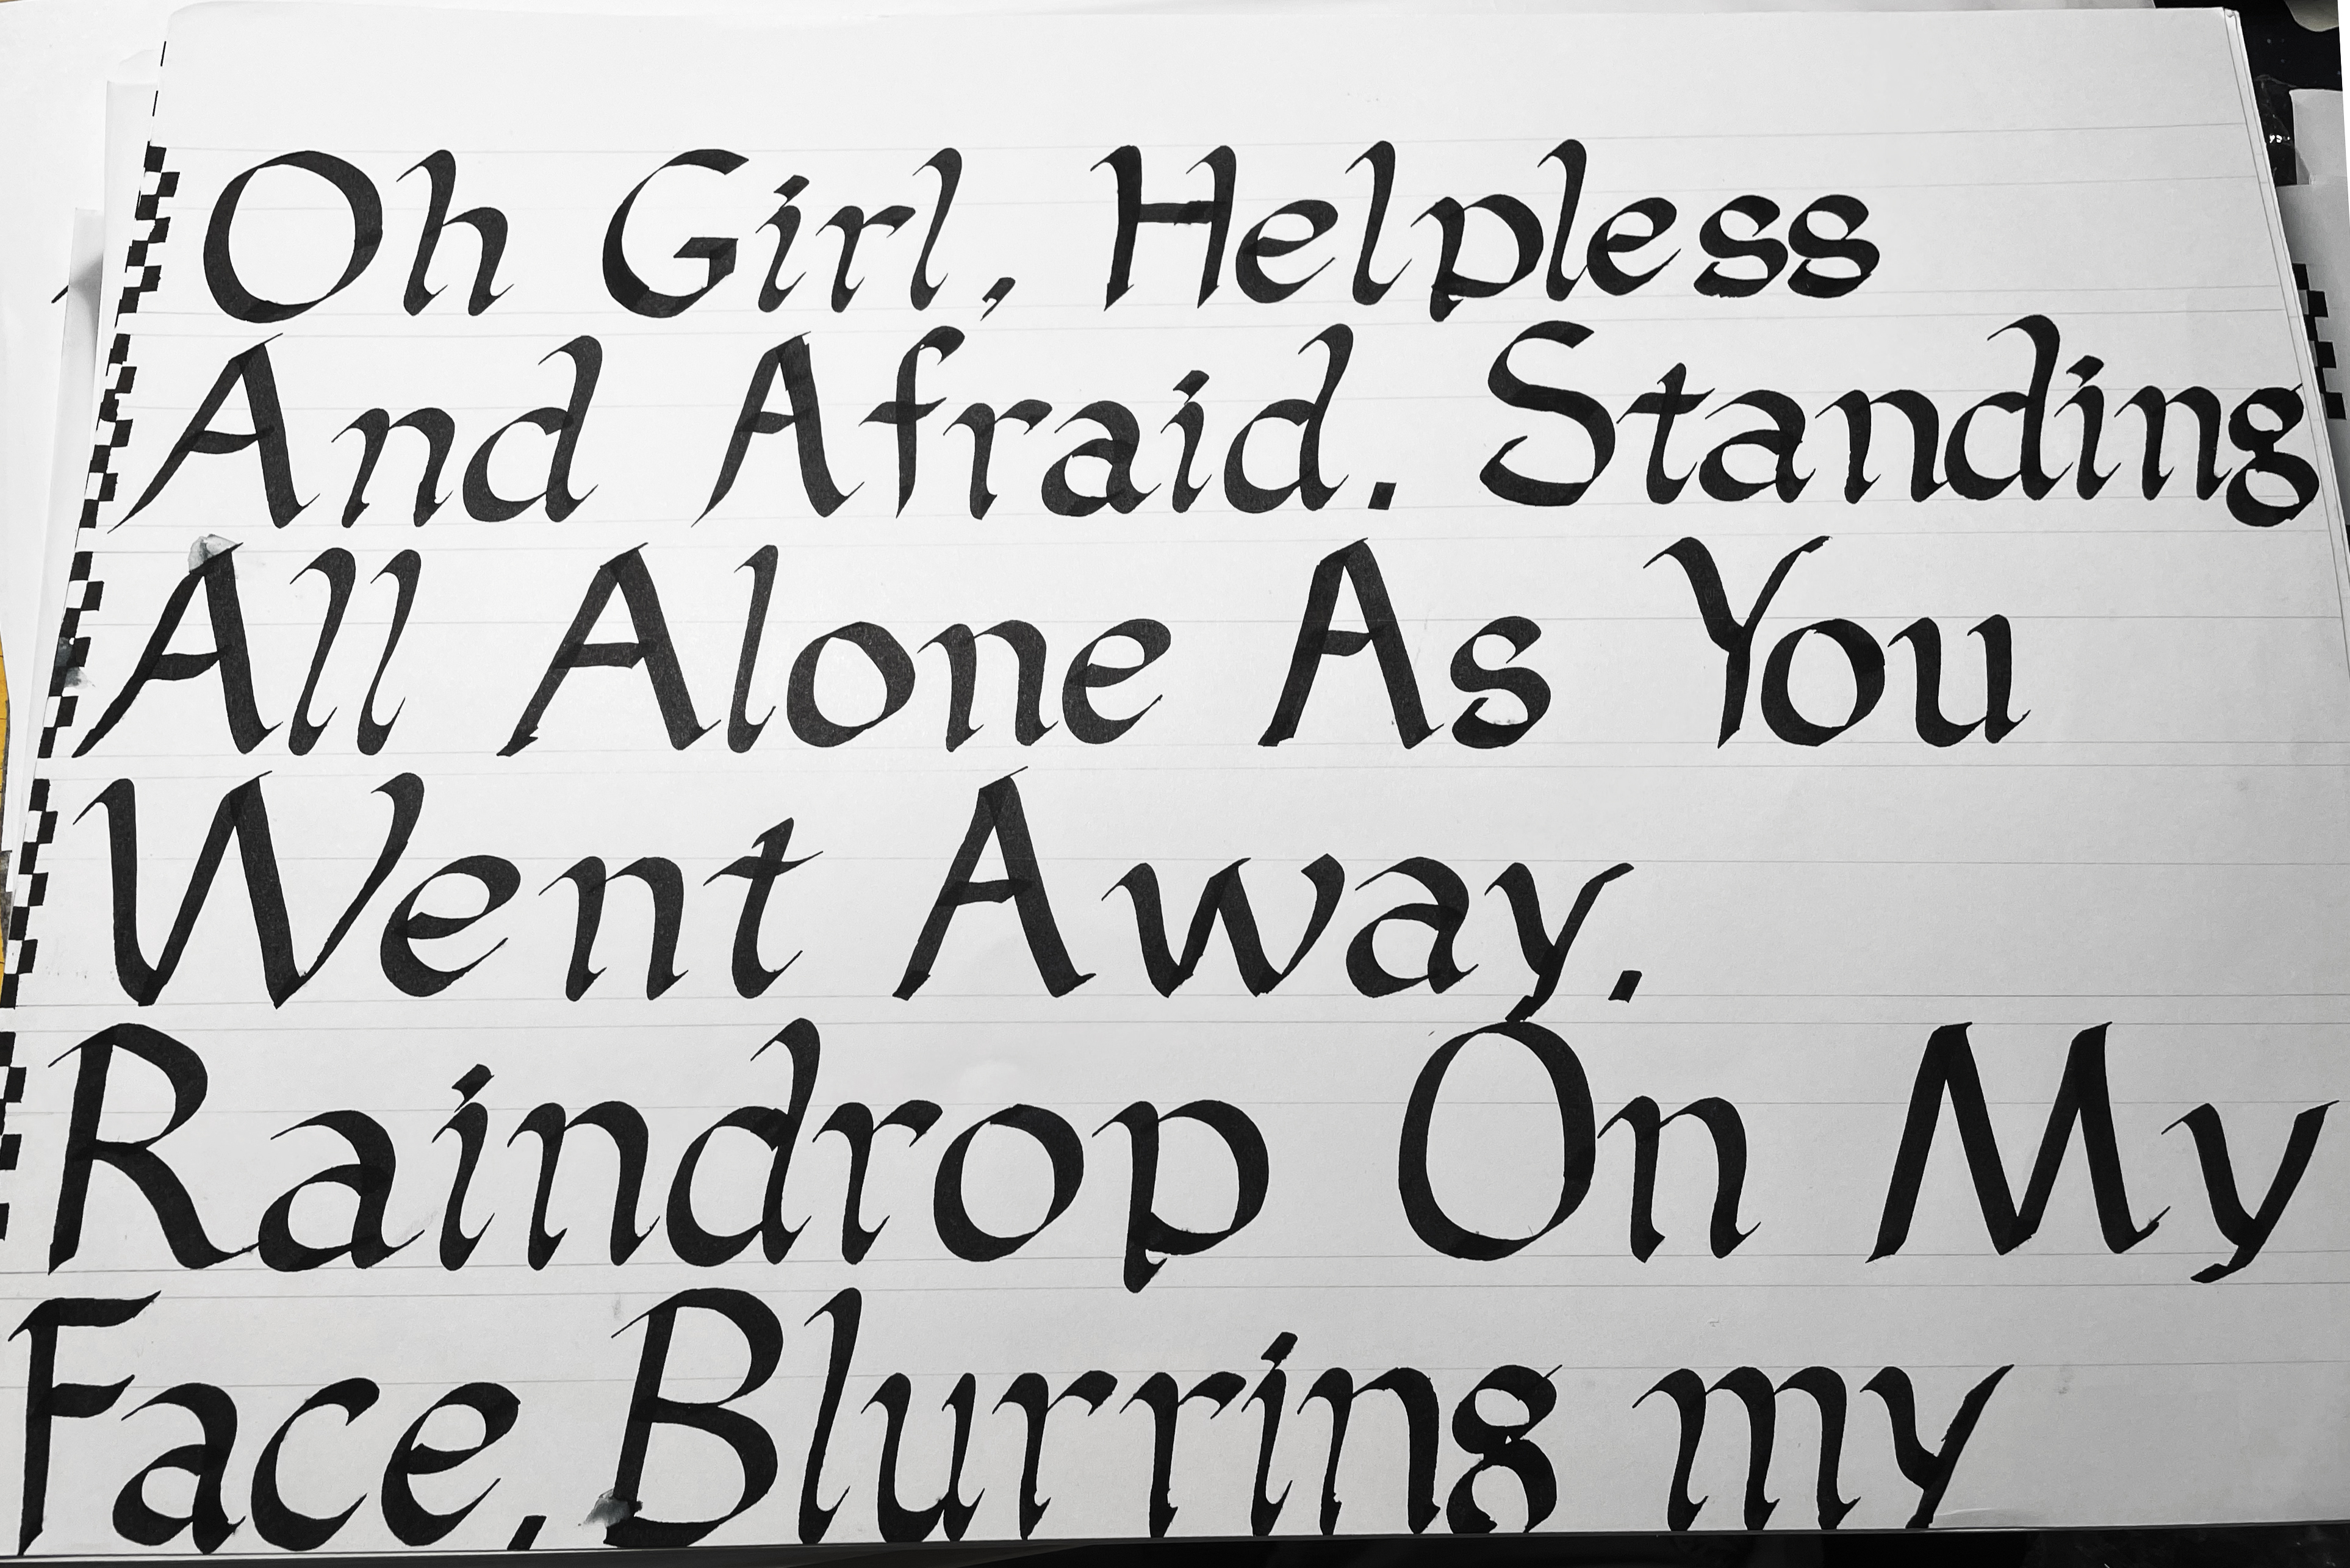 Oh Girl, Helpless
And Afraid. Standing
All Alone As You
Went Away.
Raindrop On My
Face, Blurring my